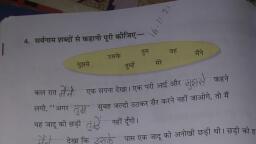 16.11.21
4. सर्वनाम शब्दों से कहानी पूरी कीजिए—
मुझसे उसके तुम वह मैंने
तुम्हें मेरे
कल रात मैंने एक सपना देखा। एक परी आई और मुझसे कहने
लगी, "अगर तुम सुबह जल्दी उठकर सैर करने नहीं जाओगे, तो मैं
यह जादू की छड़ी तुम्हें नहीं दूँगी।
मैंने देखा कि उसके पास एक जादू की अनोखी छड़ी थी। छड़ी को